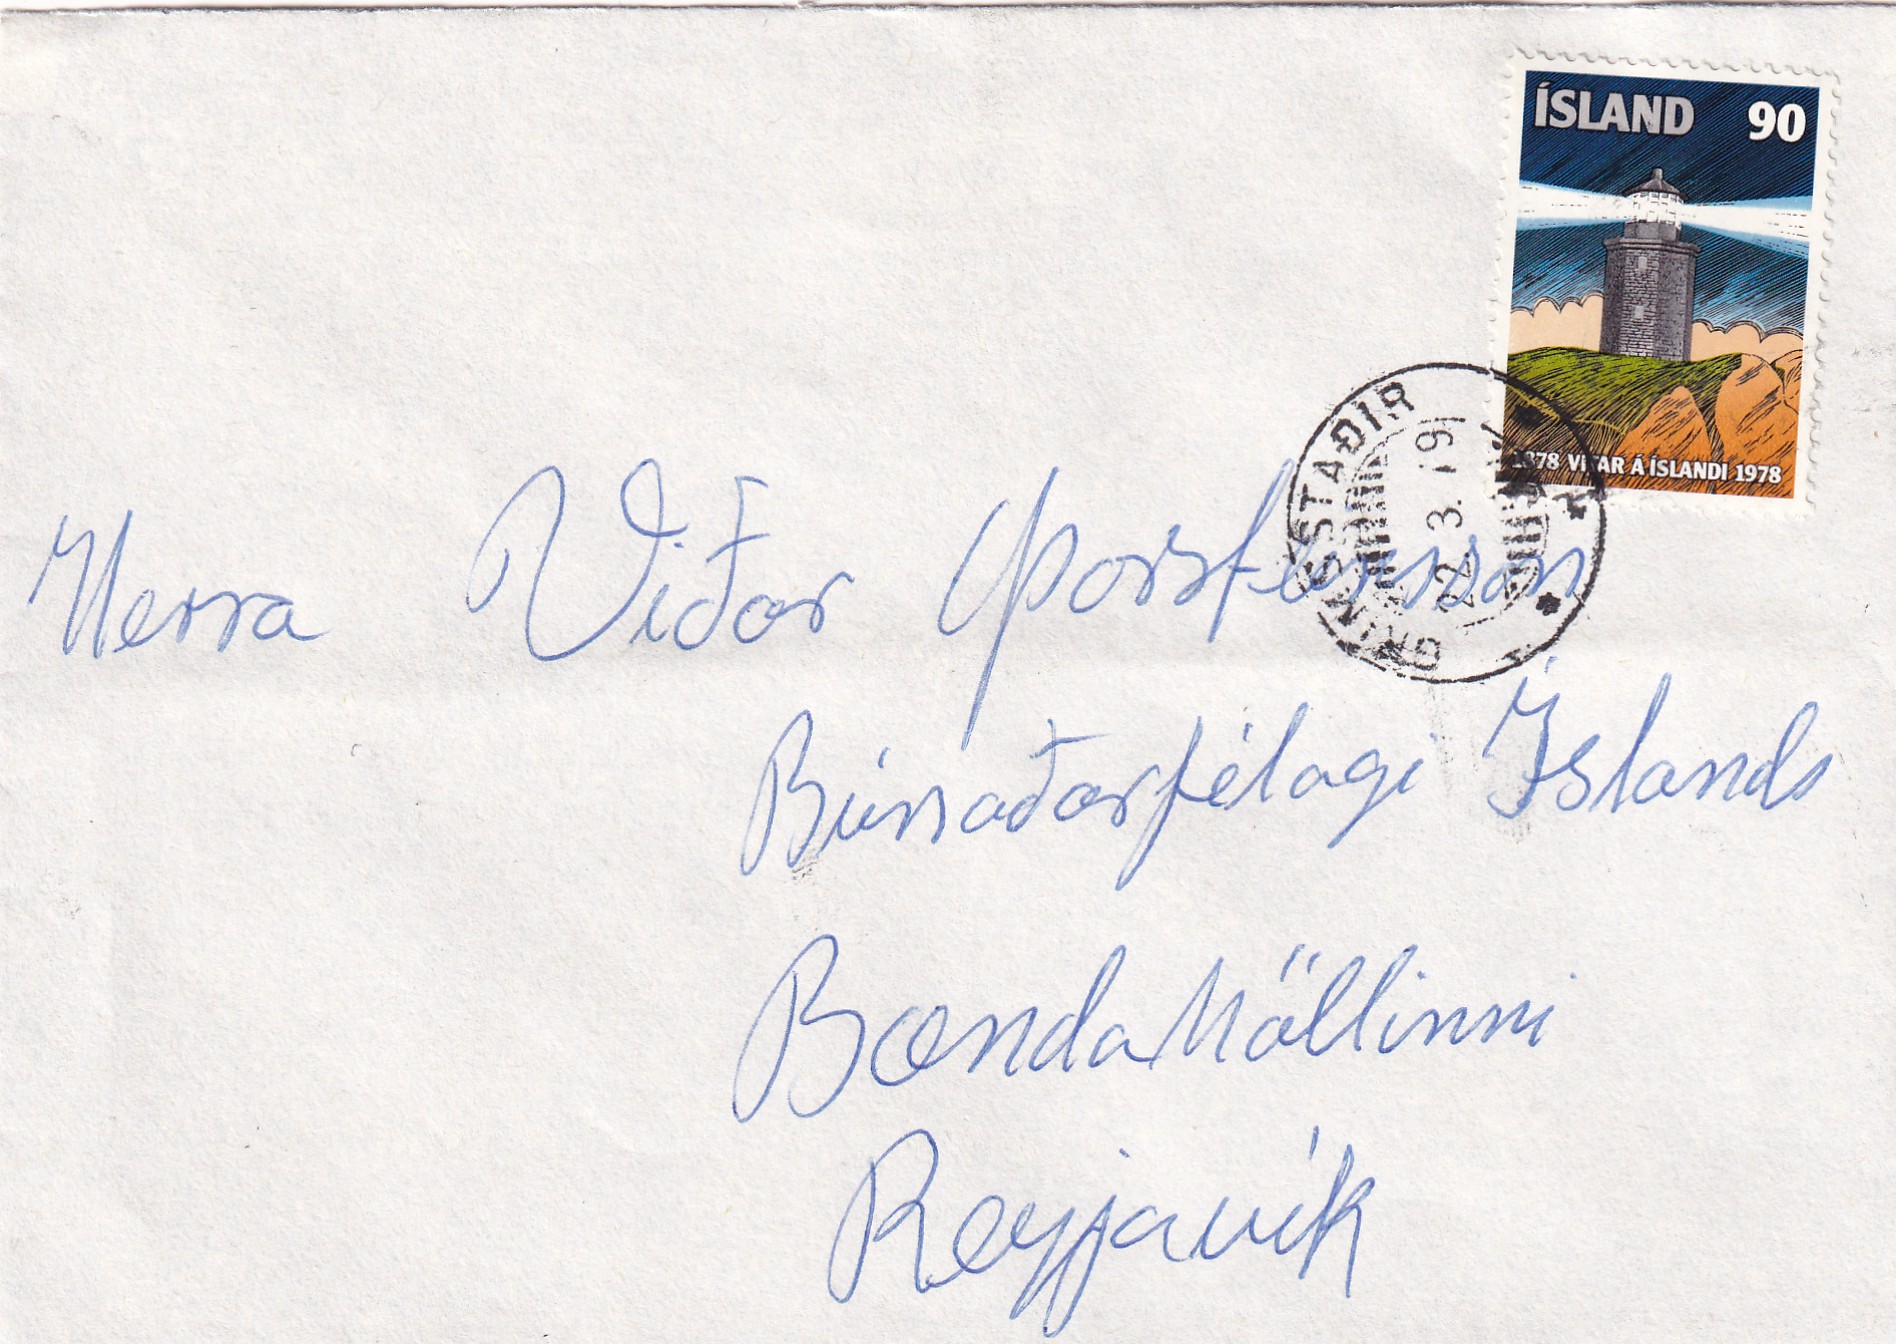 ÍSLAND 90
1878 VITAR Á ÍSLANDI 1978
GRÍMSSTAÐIR
22. 3. 79
Herra Viðar Þorsteinsson
Búnaðarfélagi Íslands
Bændahöllinni
Reyjavík